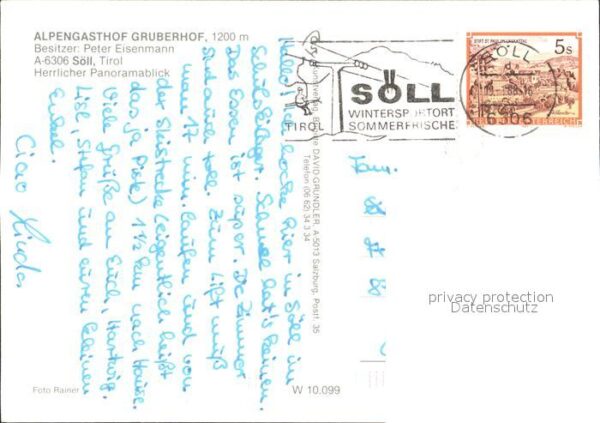 ALPENGASTHOF GRUBERHOF, 1200 m
Besitzer: Peter Eisenmann
A-6306 Söll, Tirol
Herrlicher Panoramablick
Hallo, ich hocke hier in Söll im
Schikollager. Schnee hat's keinen.
Das Essen ist super. Die Zimmer
sind auch toll. Zum Lift muß
man 17 min. laufen und von
der Skistrecke (eigentlich heißt
das ja Piste) 1½ km nach Hause.
Viele Grüße an Euch, Hartwig,
Lisl, Stefan und euren kleinen
Enkel.
Ciao Linda
Kunstverlag DAVID GRÜNDLER, A-5013 Salzburg, Postf. 35
Telefon (06 62) 34 3 34
TIROL
SÖLL
WINTERSPORTORT
SOMMERFRISCHE
STIFT ST. PAUL IM LAVANTTAL
5 S
REPUBLIK ÖSTERREICH
SÖLL
6306
Fam.
privacy protection
Datenschutz
Foto Rainer
W 10.099